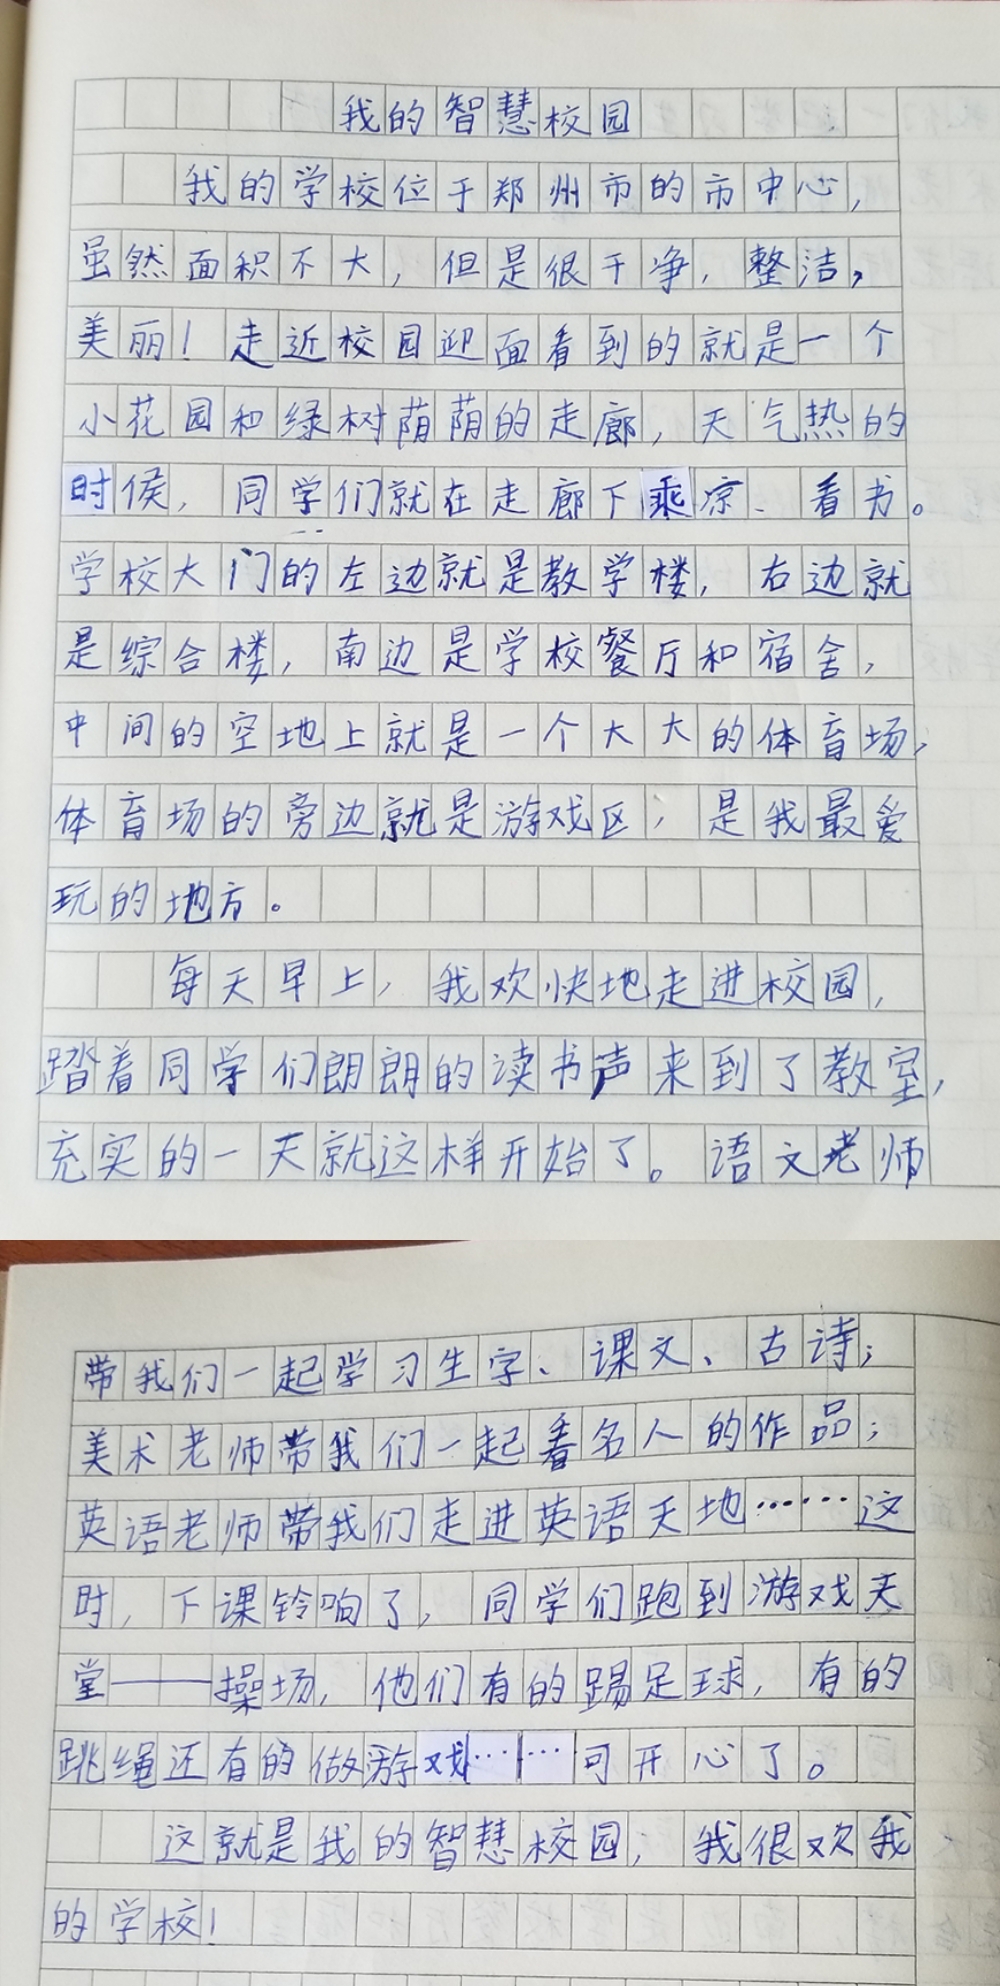 我的智慧校园
我的学校位于郑州市的市中心，
虽然面积不大，但是很干净，整洁，
美丽！走近校园迎面看到的就是一个
小花园和绿树荫荫的走廊，天气热的
时候，同学们就在走廊下乘凉、看书。
学校大门的左边就是教学楼，右边就
是综合楼，南边是学校餐厅和宿舍，
中间的空地上就是一个大大的体育场，
体育场的旁边就是游戏区，是我最爱
玩的地方。
每天早上，我欢快地走进校园，
踏着同学们朗朗的读书声来到了教室，
充实的一天就这样开始了。语文老师
带我们一起学习生字、课文、古诗；
美术老师带我们一起看名人的作品；
英语老师带我们走进英语天地……这
时，下课铃响了，同学们跑到游戏天
堂——操场，他们有的踢足球，有的
跳绳还有的做游戏……可开心了。
这就是我的智慧校园，我很欢我
的学校！